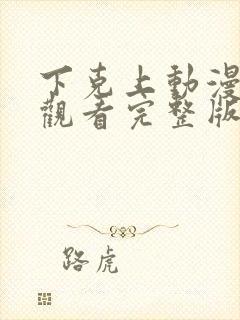 下克上動漫
觀看完整版
路虎